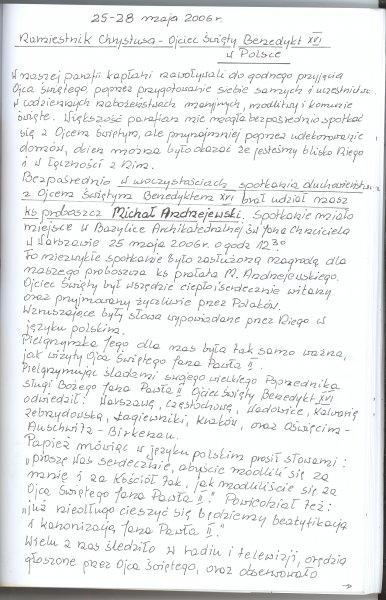 25-28 maja 2006r.
Namiestnik Chrystusa - Ojciec Święty Benedykt XVI
w Polsce
W naszej parafii kapłani nawoływali do godnego przyjęcia
Ojca Świętego poprzez przygotowanie siebie samych i uczestnictwo
w codziennych nabożeństwach maryjnych, modlitwy i komunie
święte. Większość parafian nie mogła bezpośrednio spotkać
się z Ojcem Świętym, ale przynajmniej poprzez udekorowanie
domów, dzień można było okazać że jesteśmy blisko Niego
i w łączności z Nim.
Bezpośrednio w uroczystościach spotkania duchowieństwa
z Ojcem Świętym Benedyktem XVI brał udział nasz
ks proboszcz Michał Andrzejewski. Spotkanie miało
miejsce w Bazylice Archikatedralnej św Jana Chrzciciela
w Warszawie 25 maja 2006r. o godz 12³⁰
To niezwykłe spotkanie było zasłużoną nagrodą dla
naszego proboszcza ks prałata M. Andrzejewskiego.
Ojciec Święty był wszędzie ciepło i serdecznie witany
oraz przyjmowany życzliwie przez Polaków.
Wzruszające były słowa wypowiadane przez Niego w
języku polskim.
Pielgrzymka Jego dla nas była tak samo ważna,
jak wizyty Ojca Świętego Jana Pawła II.
Pielgrzymując śladami swojego wielkiego Poprzednika
sługi Bożego Jana Pawła II Ojciec Święty Benedykt XVI
odwiedził: Warszawę, Częstochowę, Wadowice, Kalwarię
Zebrzydowską, Łagiewniki, Kraków, oraz Oświęcim -
Auschwitz - Birkenau.
Papież mówiąc w języku polskim prosił słowami:
„proszę Was serdecznie, abyście modlili się za
mnie i za Kościół tak, jak modliliście się za
Ojca Świętego Jana Pawła II." Powiedział też:
„już niedługo cieszyć się będziemy beatyfikacją
i kanonizacją Jana Pawła II."
Wielu z nas śledziło w radiu i telewizji, orędzia
głoszone przez Ojca Świętego, oraz obserwowało